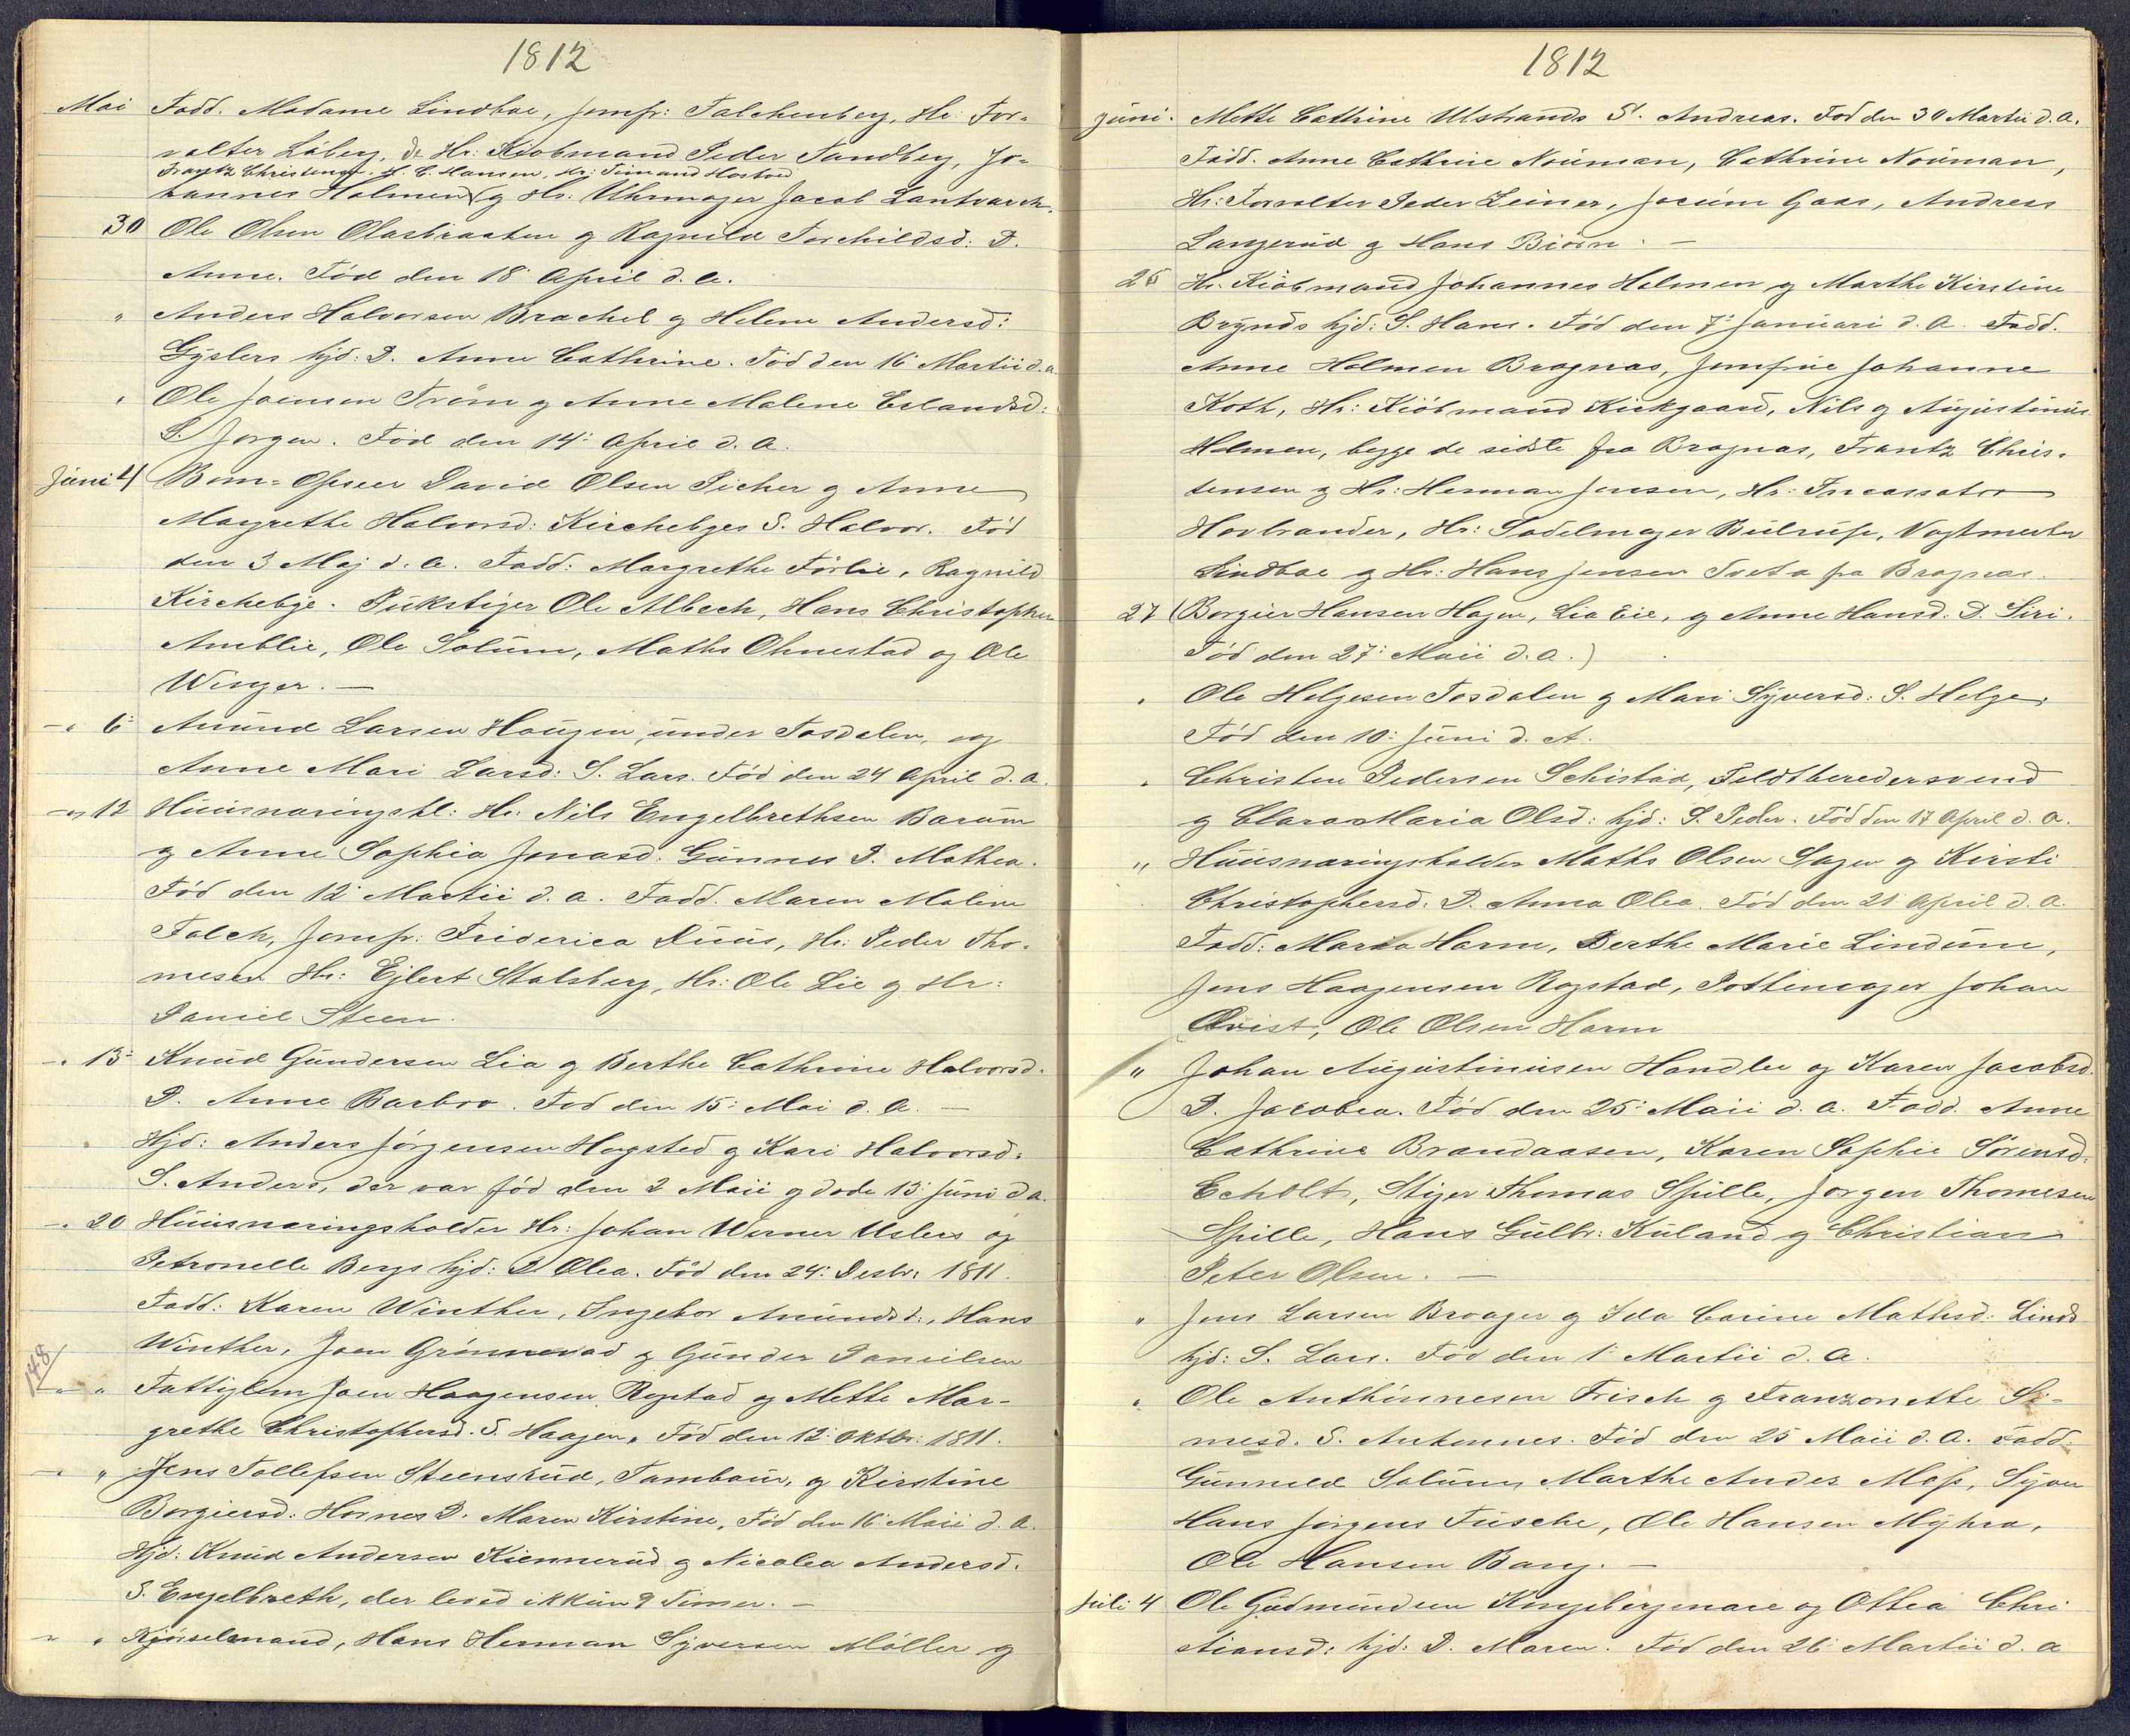 1812
Mai Fadd. Madame Lindboe, Jomfr: Falchenberg, Hr. For-
valter Löberg, de Hr: Kiöbmand Peder Sandberg, Jo-
Frantz Christensen. H. C. Hansen, Hr: Simand Hostved
hannes Holmen g Hr. Uhrmager Jacob Lantvarch.
30 Ole Olsen Olasbraaten g Ragnild Torchildsd: D.
Anne. Född den 18 April d. a.
" Anders Halvorsen Brachel g Helene Andersd:
Gyslers hjd: D. Anne Cathrine. Född den 16 Martii d. a.
" Ole Joensen Tröm g Anne Malene Erlandsd:
S. Jorgen. Född den 14: April d. a.
Juni 4 Bom-Opseer David Olsen Picher g Anne
Margrethe Halvorsd: Kirchebyes S. Halvor. Född
den 3 Maj d. a. Fadd: Margrethe Förlie, Ragnild
Kirchebye. Pukstiger Ole Albech, Hans Christopher
Amblie, Ole Solum, Maths Ohnestad og Ole
Winger. —
- " 6: Amund Larsen Haugen, under Fosdalen, og
Anne Mari Larsd: S. Lars. Född den 24 April d. a.
- " 12 Huusnæringshl: Hr. Nils Engelbrethsen Barum
g Anne Sophia Jonasd: Gunnes D. Mathea.
Född den 12 Martii d. a. Fadd. Maren Malene
Falch, Jomfr: Friderica Duus, Hr. Peder Tho-
mesen Hr: Ejlert Stalsberg, Hr: Ole Lie g Hr:
Daniel Steen.
- " 13: Knud Gundersen Lia g Berthe Cathrine Halvorsd.
D. Anne Barbro. Född den 15: Mai d. a. —
" Hjd: Anders Jörgensen Hogsted g Kari Halvorsd:
S. Anders, der var född den 2 Maii g döde 13: Juni d a.
- " 20 Huusnæringsholder Hr: Johan Werner Uslers og
Petronelle Bergs hjd: D. Olea. Född den 24: Desbr: 1811.
Fadd: Karen Winther, Ingebor Amundsd:, Hans
Winther, Joen Grönnevad g Gunder Danielsen
148
- " " Fattiglem Joen Haagensen Rogstad og Mette Mar-
grethe Christophersd. S. Haagen, Född den 12: Oktbr: 1811.
- " " Jens Tollefsen Steensrud, Tambour, g Kirstine
Borgiersd: Hornes D. Maren Kirstine, Född den 16: Maii d. a.
Hjd: Knud Andersen Kiennerud g Nicolea Andersd.
S. Engelbreth, der leved ikkun 9 Timer. —
- " Kjörselsmand, Hans Herman Syversen Möller g
1812
Juni. Mette Cathrine Ulstrands S. Andreas. Född den 30 Martii d. a.
Fadd. Anne Cathrine Nouman, Cathrine Nouman,
Hr: Forvalter Peder Leiner, Jocum Gaas, Andreas
Langerud g Hans Biörn. —
25 Hr. Kiöbmand Johannes Holmen g Marthe Kirstine
Brynds hjd: S. Hans. Född den 7: Januari d. a. Fadd.
Anne Holmen Bragnas, Jomfrue Johanne
Koth, Hr: Kiöbmand Kirkgaard, Nils g Augustinus
Holmen, begge de sidste fra Bragnas, Frantz Chris-
tensen g Hr: Herman Jensen, Hr: Incassator
Hovbrander, Hr: Sadelmager Bulrup, Vagtmester
Lindboe g Hr: Hans Jensen Tveta fra Bragnas.
27 (Borgier Hansen Hagen, Lia Eie, g Anne Hansd: D. Siri.
Född den 27: Maii d. a.)
" Ole Helgesen Fosdalen g Mari Syversd: S. Helge,
Född den 10: Juni d. A.
" Christen Pedersen Schistad, Feldtberedersvend
g Clara Maria Olsd: hjd: S. Peder. Född den 17 April d. a.
" Huusnæringsholder Maths Olsen Sagen g Kirsti
Christophersd. D. Anna Olea. Född den 21 April d. a.
Fadd: Maria Harm, Berthe Marie Lindum,
Jens Haagensen Rogstad, Pottemager Johan
Qvist, Ole Olsen Harm
" Johan Augustinusen Handler og Karen Jacobsd.
D. Jacobea. Född den 25: Maii d. a. Fadd. Anne
Cathrine Brandaasen, Karen Sophie Sörensd:
Echolt, Stiger Thomas Spille, Jorgen Thomesen
Spille, Hans Gulbr: Kuland g Christian
Peter Olsen. —
" Jens Larsen Broager g Ida Carine Mathisd: Linds
hjd: S. Lars. Född den 1: Martii d. a.
" Ole Anthonnesen Frisch g Franzonette Si-
mesd. S. Antonnes. Född den 25 Maii d. a. Fadd.
Gunnild Solum, Marthe Anders Moss, Syver
Hans Jörgens Fusche, Ole Hansen Myhra,
Ole Hansen Bang. —
Juli 4 Ole Gudmundsen Kongsbergenare og Ottea Chri
stiansd: hjd: D. Maren. Född den 26 Martii d. a